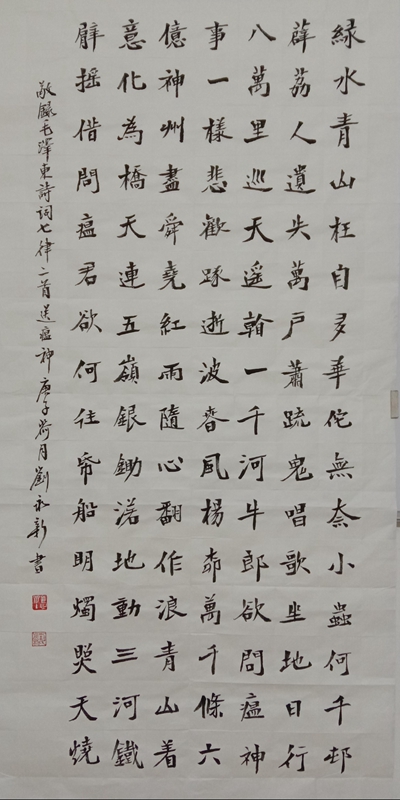 緑水青山枉自多華佗無奈小蟲何千邨
薜荔人遺失萬戶蕭疏鬼唱歌坐地日行
八萬里巡天遥看一千河牛郎欲問瘟神
事一樣悲歡逐逝波春風楊柳萬千條六
億神州盡舜堯紅雨隨心翻作浪青山着
意化為橋天連五嶺銀鋤落地動三河鐵
臂摇借問瘟君欲何往紙船明燭照天燒
敬錄毛澤東詩詞七律二首送瘟神 庚子荷月劉永新書